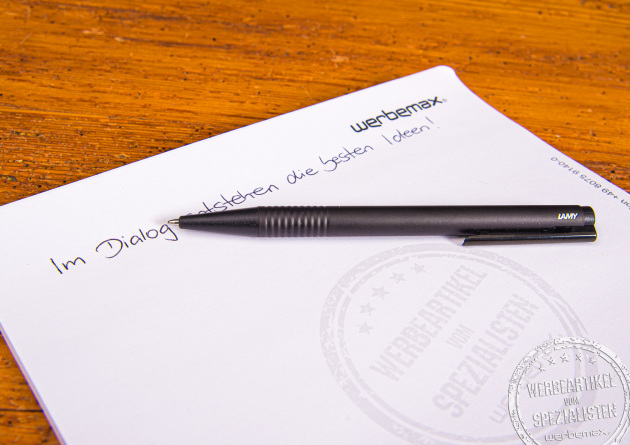 werbemax
Im Dialog entstehen die besten Ideen!
+49 8075 9140-0
LAMY
WERBEARTIKEL
VOM
SPEZIALISTEN
WERBEARTIKEL
VOM
SPEZIALISTEN
werbemax